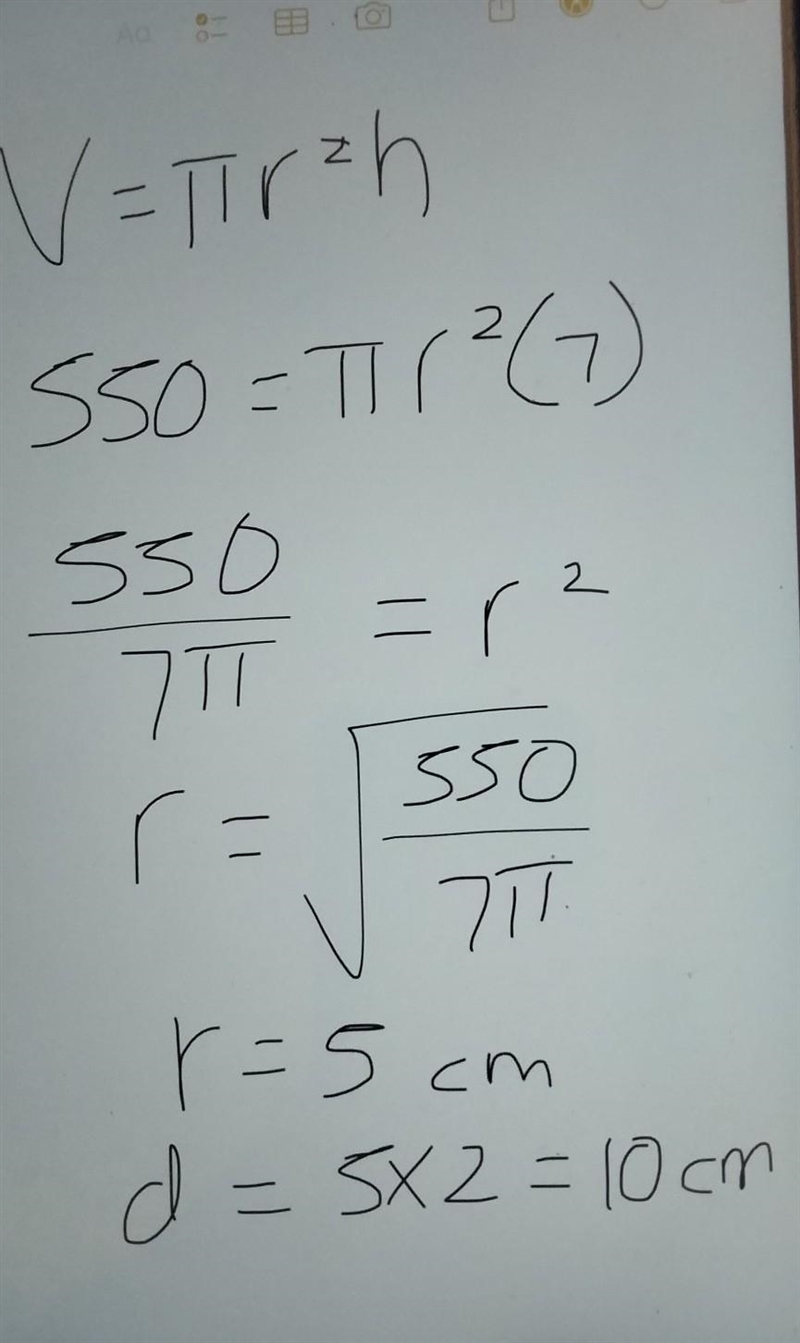 Aa
V = πr²h
550 = πr²(7)
550/7π = r²
r = √550/7π
r = 5 cm
d = 5×2 = 10 cm